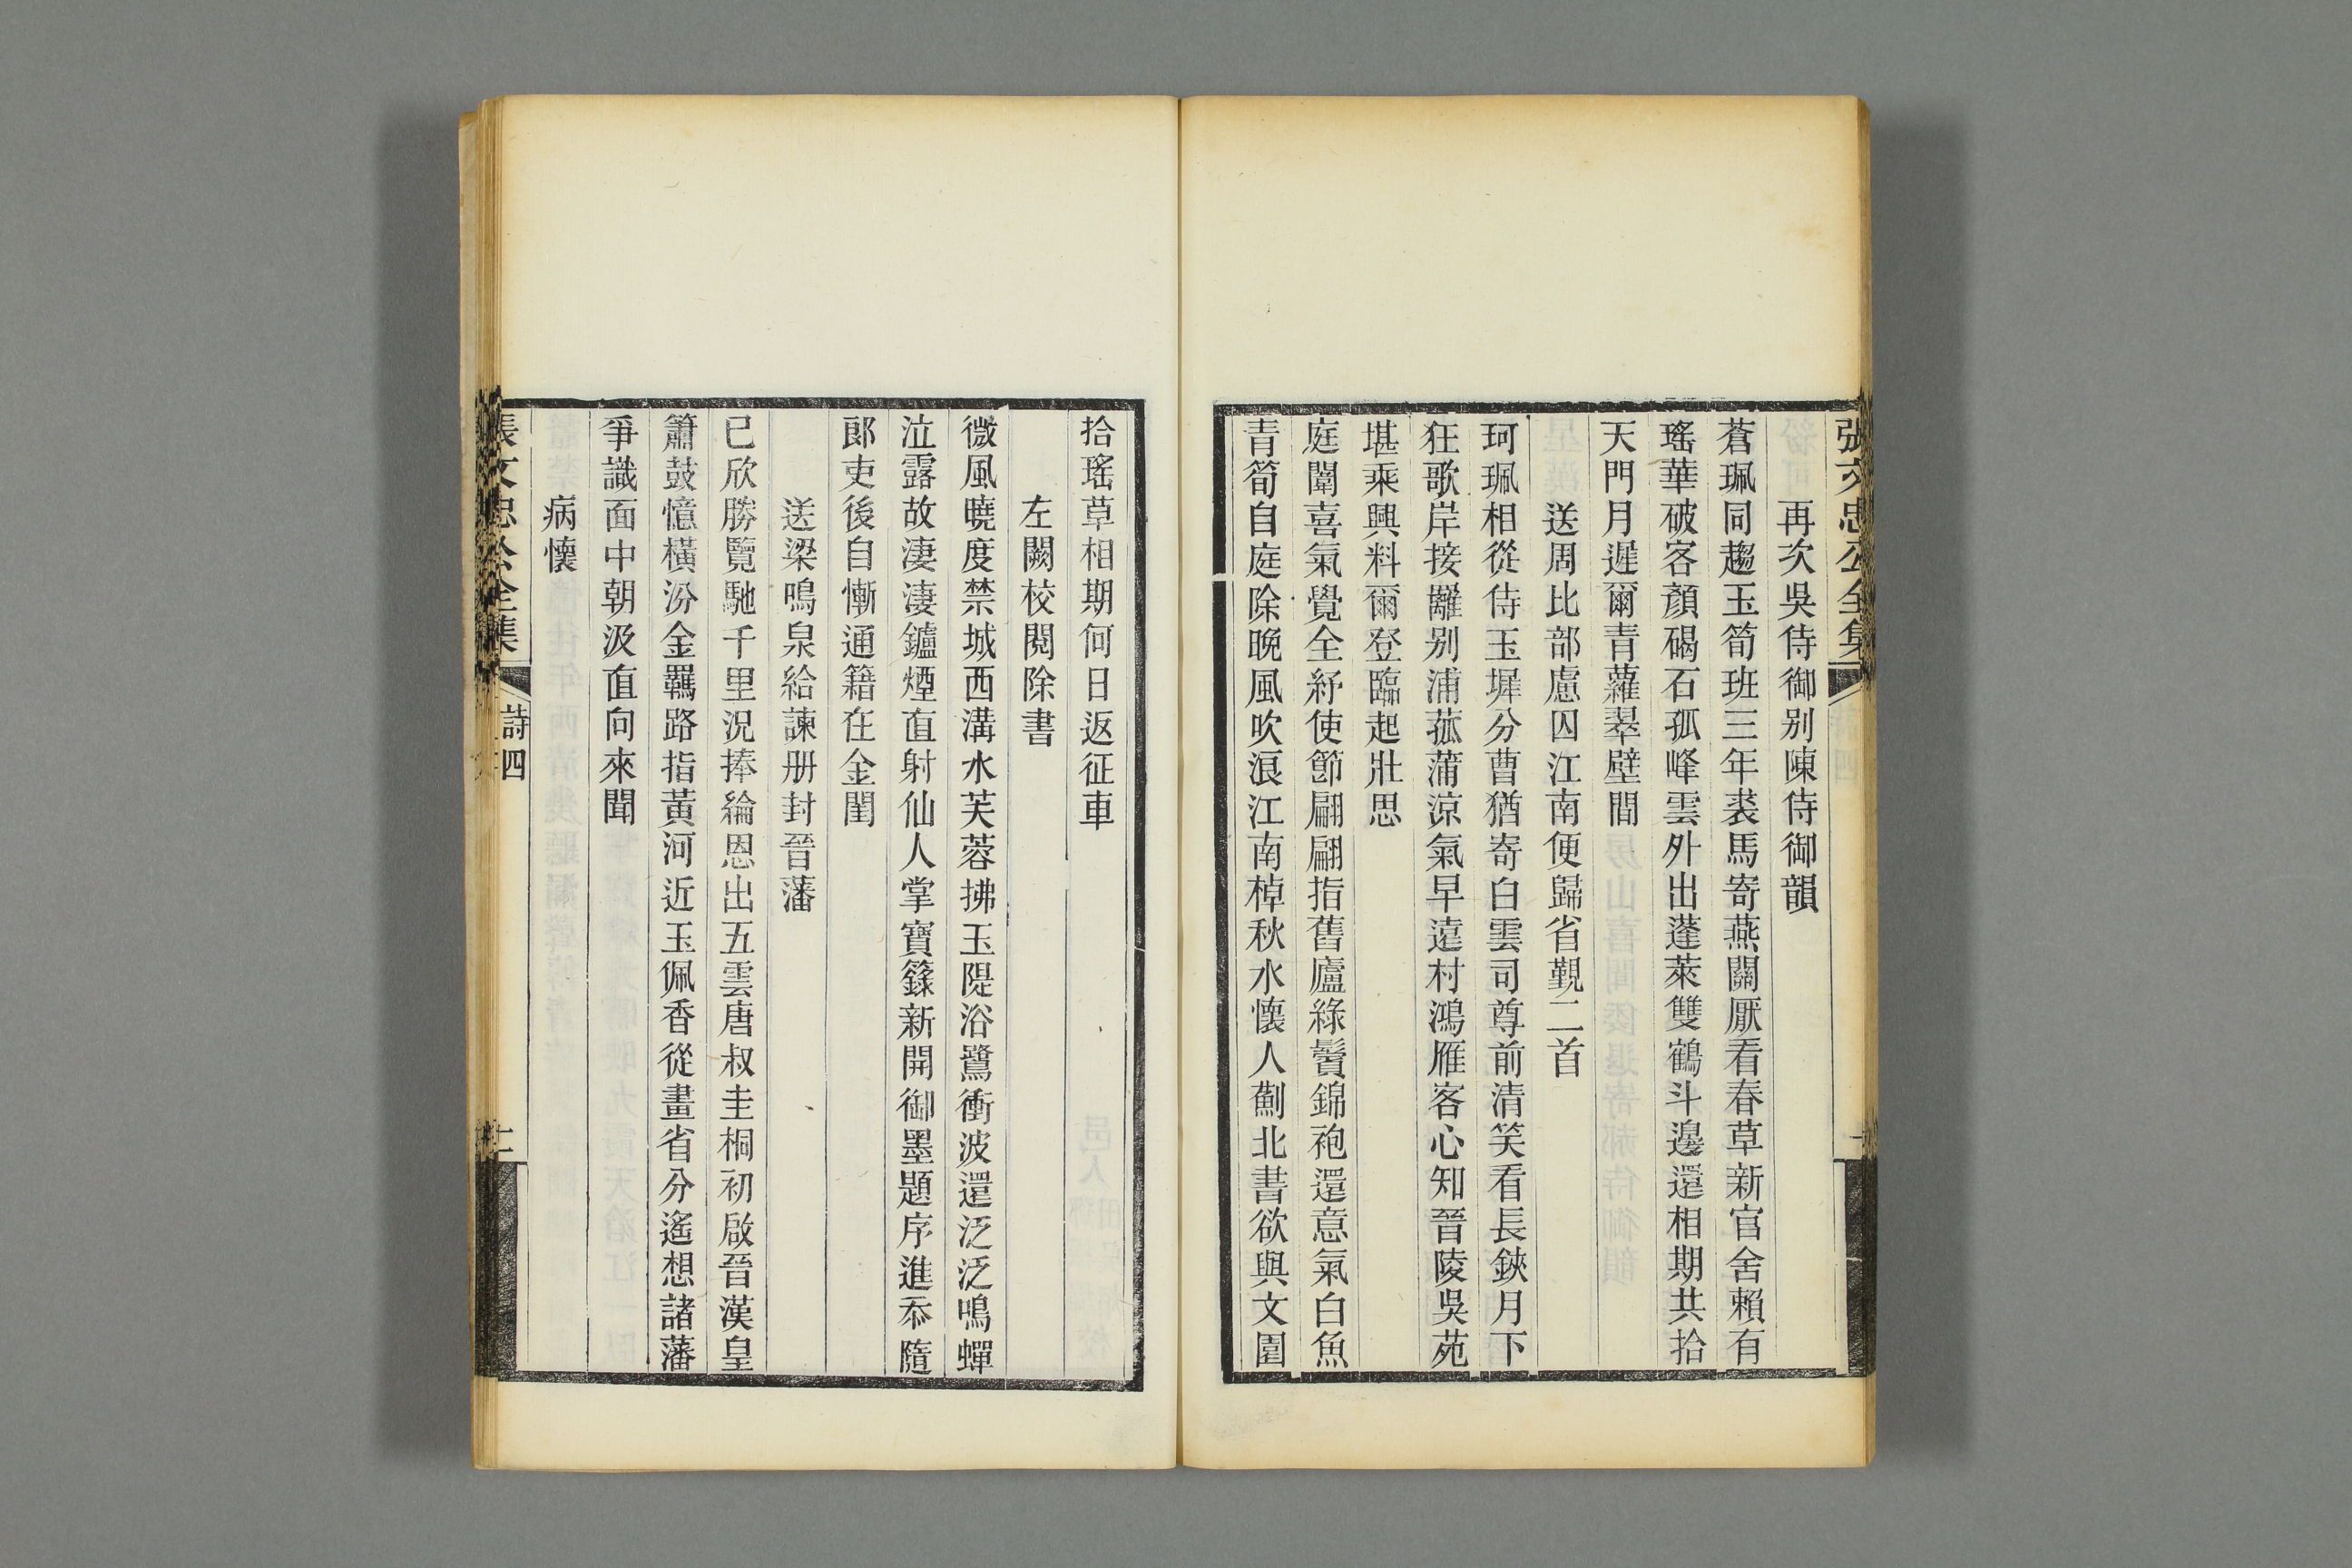 張文忠公全集
再次吳侍御别陳侍御韻
蒼珮同趨玉筍班三年裘馬寄燕關厭看春草新官舍賴有
瑤華破客顏碣石孤峰雲外出蓬萊雙鶴斗邊還相期共拾
天門月遲爾青蘿翠壁間
送周比部慮囚江南便歸省覲二首
珂珮相從侍玉墀分曹猶寄白雲司尊前清笑看長鋏月下
狂歌岸接䍦别浦菰蒲涼氣早遠村鴻雁客心知晉陵吳苑
堪乘興料爾登臨起壯思
庭闈喜氣覺全紓使節翩翩指舊廬綠鬢錦袍還意氣白魚
青筍自庭除晚風吹浪江南棹秋水懷人薊北書欲與文園
拾瑤草相期何日返征車
左闕校閱除書
微風曉度禁城西溝水芙蓉拂玉隄浴鷺衝波還泛泛鳴蟬
泣露故淒淒鑪煙直射仙人掌寶籙新開御墨題序進忝隨
郎吏後自慚通籍在金閨
送梁鳴泉給諫册封晉藩
已欣勝覽馳千里況捧綸恩出五雲唐叔圭桐初啟晉漢皇
簫鼓憶橫汾金羈路指黃河近玉佩香從畫省分遙想諸藩
爭識面中朝汲直向來聞
病懷
張文忠公全集
詩四
二